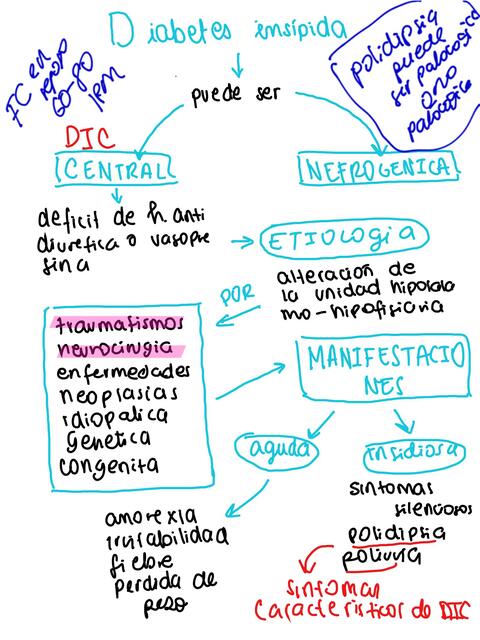 Diabetes insípida
FC en
reposo
60-80
lpm
polidipsia
puede
ser patologica
o no
patologica
puede ser
DIC
CENTRAL
NEFROGENICA
deficit de h. anti
diuretica o vasopre
sina
ETIOLOGIA
alteración de
la unidad hipotala
mo-hipofisiaria
POR
traumatismos
neurocirugia
enfermedades
neoplasias
idiopatica
genetica
congenita
MANIFESTACIO
NES
aguda
insidiosa
anorexia
irritabilidad
fiebre
perdida de
peso
sintomas
silenciosos
polidipsia
poliuria
sintomas
caracteristicos de DIC